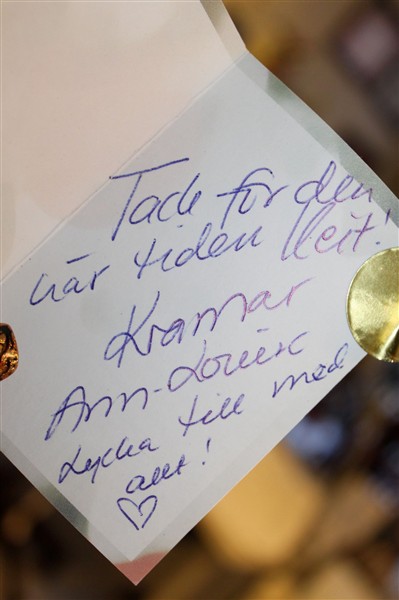 Tack för den
här tiden Britt!
Kramar
Ann-Louise
Lycka till med
allt!